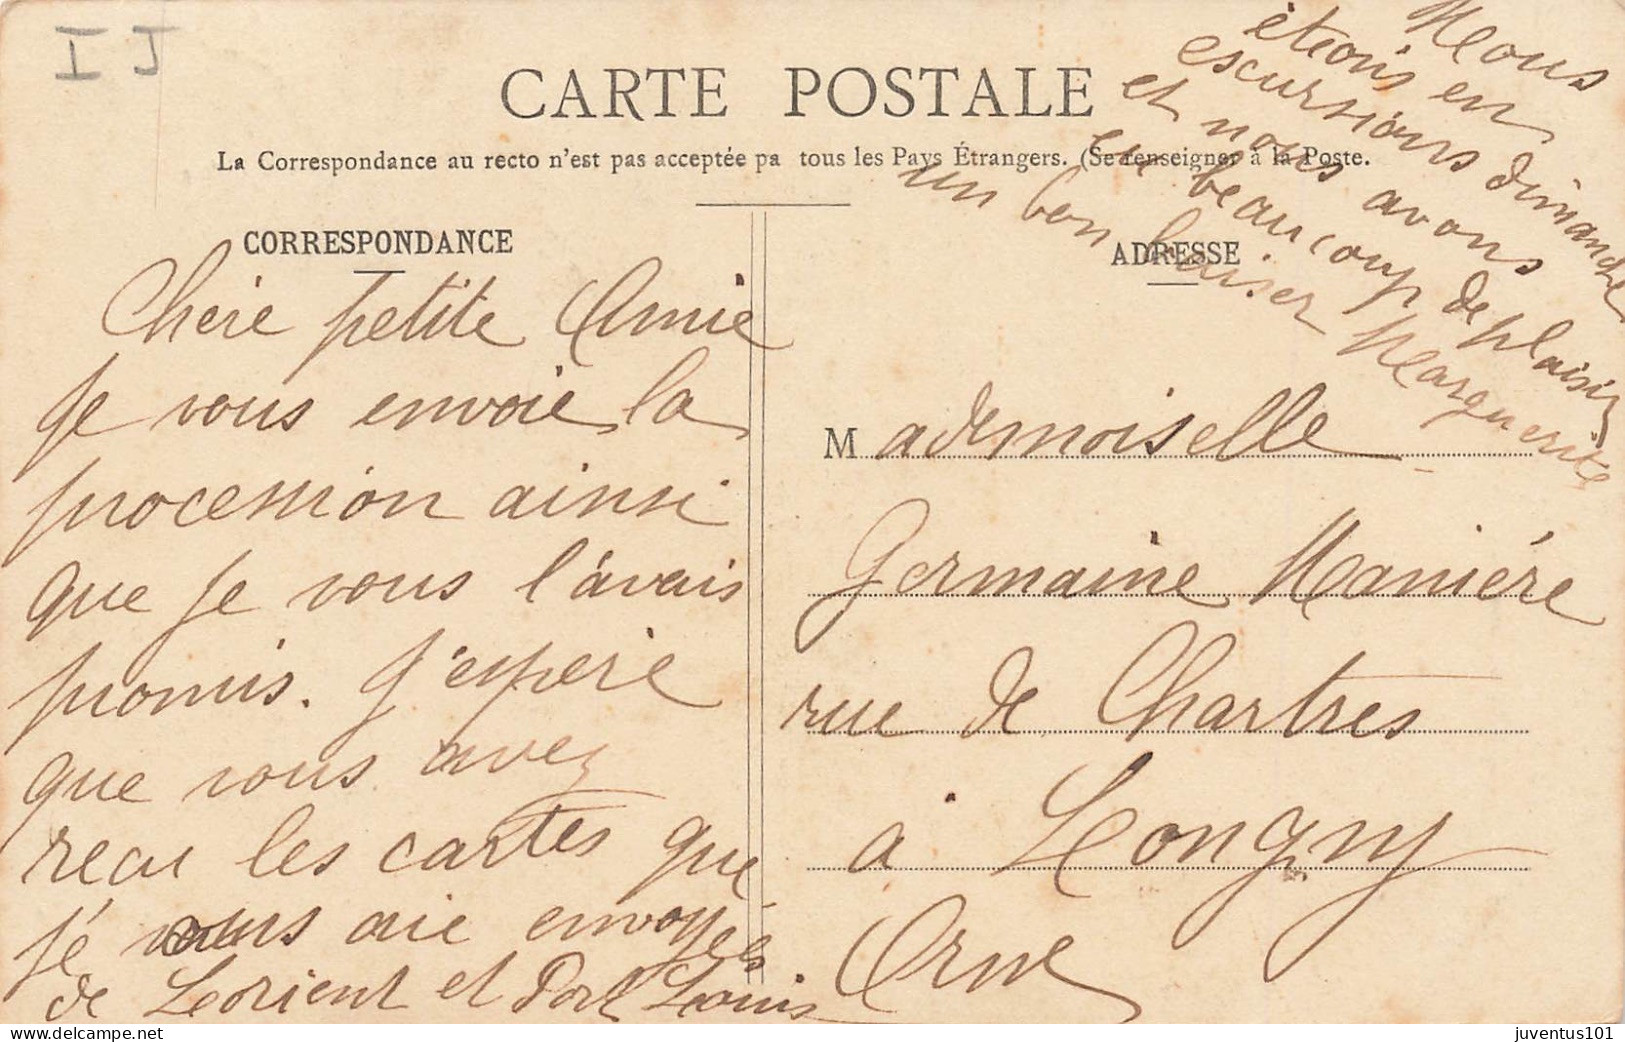 I J
CARTE POSTALE
La Correspondance au recto n'est pas acceptée pa tous les Pays Étrangers. (Se renseigner à la Poste.
CORRESPONDANCE
Chère petite Amie
je vous envoie la
procession ainsi
que je vous l'avais
promis. J'espère
que vous avez
recu les cartes que
je vous aie envoyées
de Lorient et Port Louis
Nous
étions en
escursions dimanche
et nous avons
eu beaucoup de plaisir
un bon baiser Marguerite
ADRESSE
Mademoiselle
Germaine Manière
rue de Chartres
à Longny
Orne
delcampe.net
juventus101